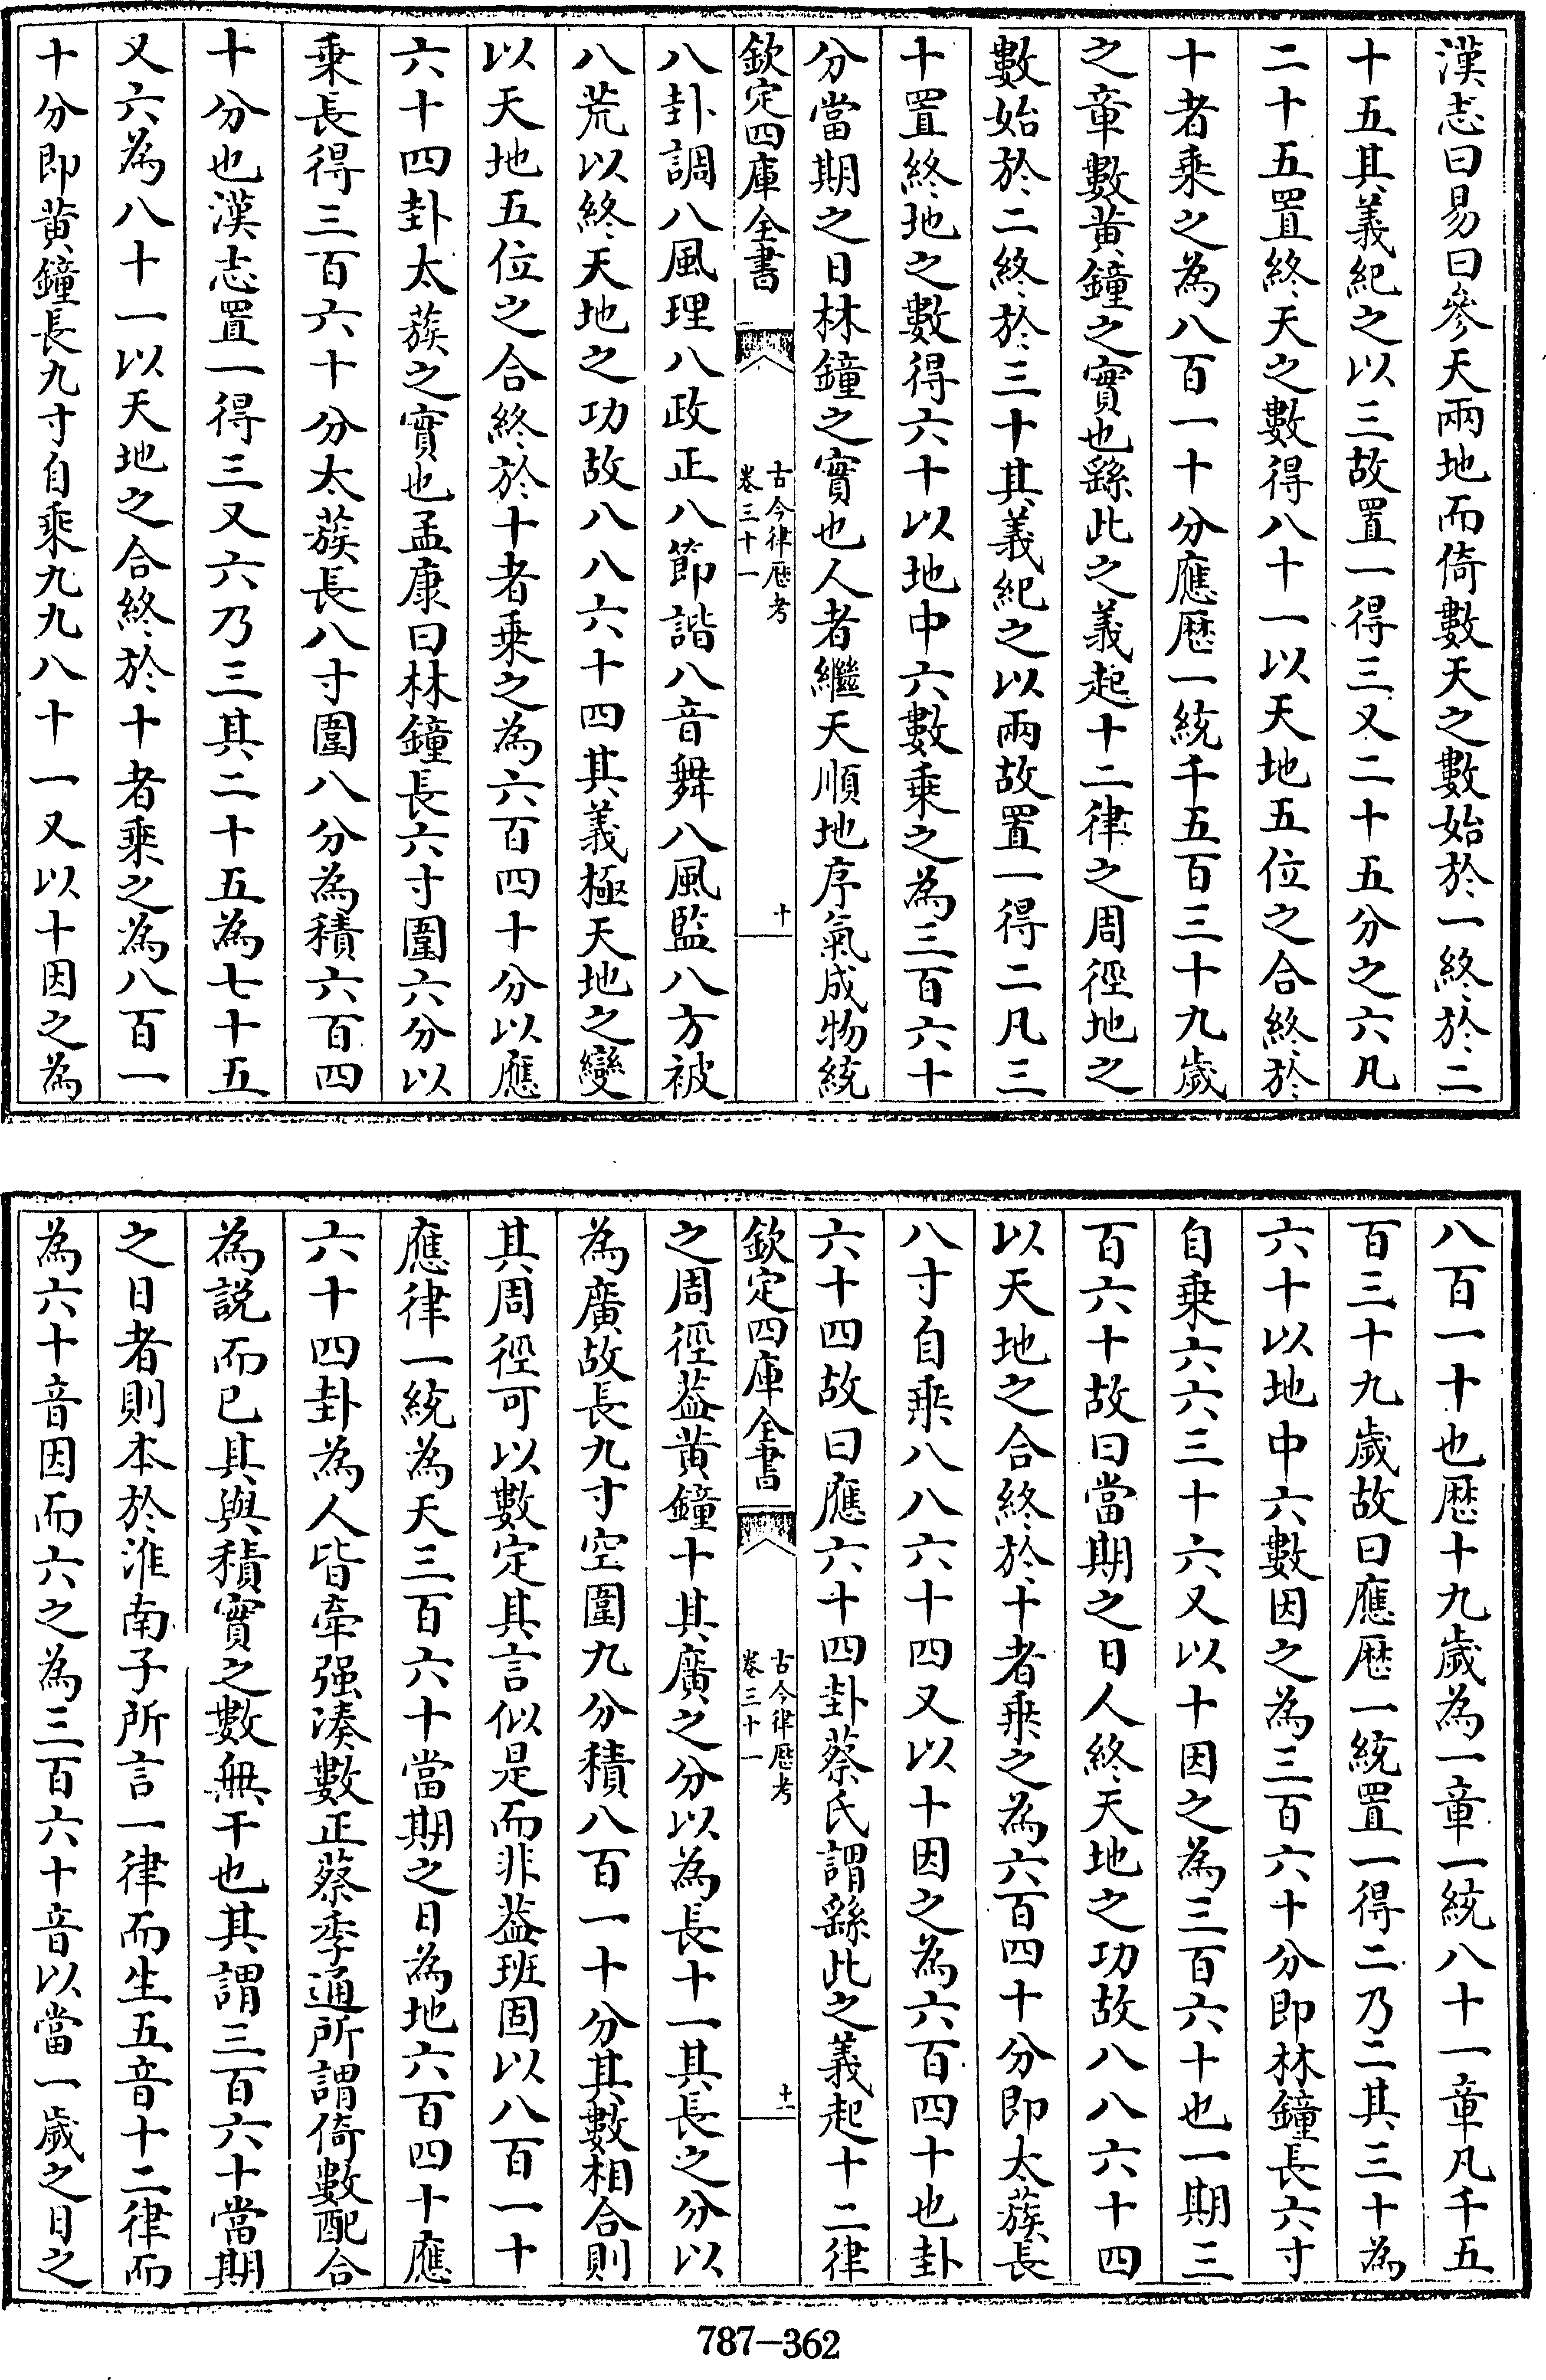 漢志曰易曰參天兩地而倚數天之數始於一終於二
十五其義紀之以三故置一得三又二十五分之六凡
二十五置終天之數得八十一以天地五位之合終於
十者乘之為八百一十分應歴一統千五百三十九歲
之章數黄鐘之實也繇此之義起十二律之周徑地之
數始於二終於三十其義紀之以兩故置一得二凡三
十置終地之數得六十以地中六數乘之為三百六十
分當期之日林鐘之實也人者繼天順地序氣成物統
欽定四庫全書
古今律歴考
卷三十一
十
八卦調八風理八政正八節諧八音舞八風監八方被
八荒以終天地之功故八八六十四其義極天地之變
以天地五位之合終於十者乗之為六百四十分以應
六十四卦太蔟之實也孟康曰林鐘長六寸圍六分以
乘長得三百六十分太蔟長八寸圍八分為積六百四
十分也漢志置一得三又六乃三其二十五為七十五
又六為八十一以天地之合終於十者乘之為八百一
十分即黄鐘長九寸自乘九九八十一又以十因之為
八百一十也歴十九歲為一章一統八十一章凡千五
百三十九歲故曰應歴一統置一得二乃二其三十為
六十以地中六數因之為三百六十分即林鐘長六寸
自乘六六三十六又以十因之為三百六十也一期三
百六十故曰當期之日人終天地之功故八八六十四
以天地之合終於十者乗之為六百四十分即太蔟長
八寸自乘八八六十四又以十因之為六百四十也卦
六十四故曰應六十四卦蔡氏謂繇此之義起十二律
欽定四庫全書
古今律歴考
卷三十一
十一
之周徑葢黄鐘十其廣之分以為長十一其長之分以
為廣故長九寸空圍九分積八百一十分其數相合則
其周徑可以數定其言似是而非葢班固以八百一十
應律一統為天三百六十當期之日為地六百四十應
六十四卦為人皆牽强湊數正蔡季通所謂倚數配合
為説而已其與積實之數無干也其謂三百六十當期
之日者則本於淮南子所言一律而生五音十二律而
為六十音因而六之為三百六十音以當一歲之日之
787-362